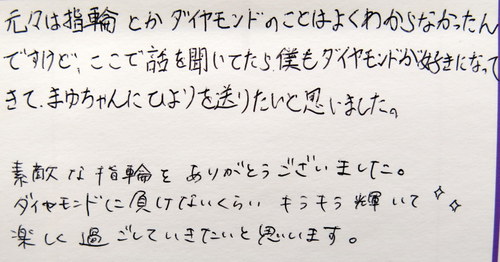 元々は指輪とかダイヤモンドのことはよくわからなかったん
ですけど、ここで話を聞いてたら僕もダイヤモンドが好きになって
きて、まゆちゃんにひとりを送りたいと思いました。
素敵な指輪をありがとうございました。
ダイヤモンドに負けないくらい キラキラ輝いて
楽しく過ごしていきたいと思います。